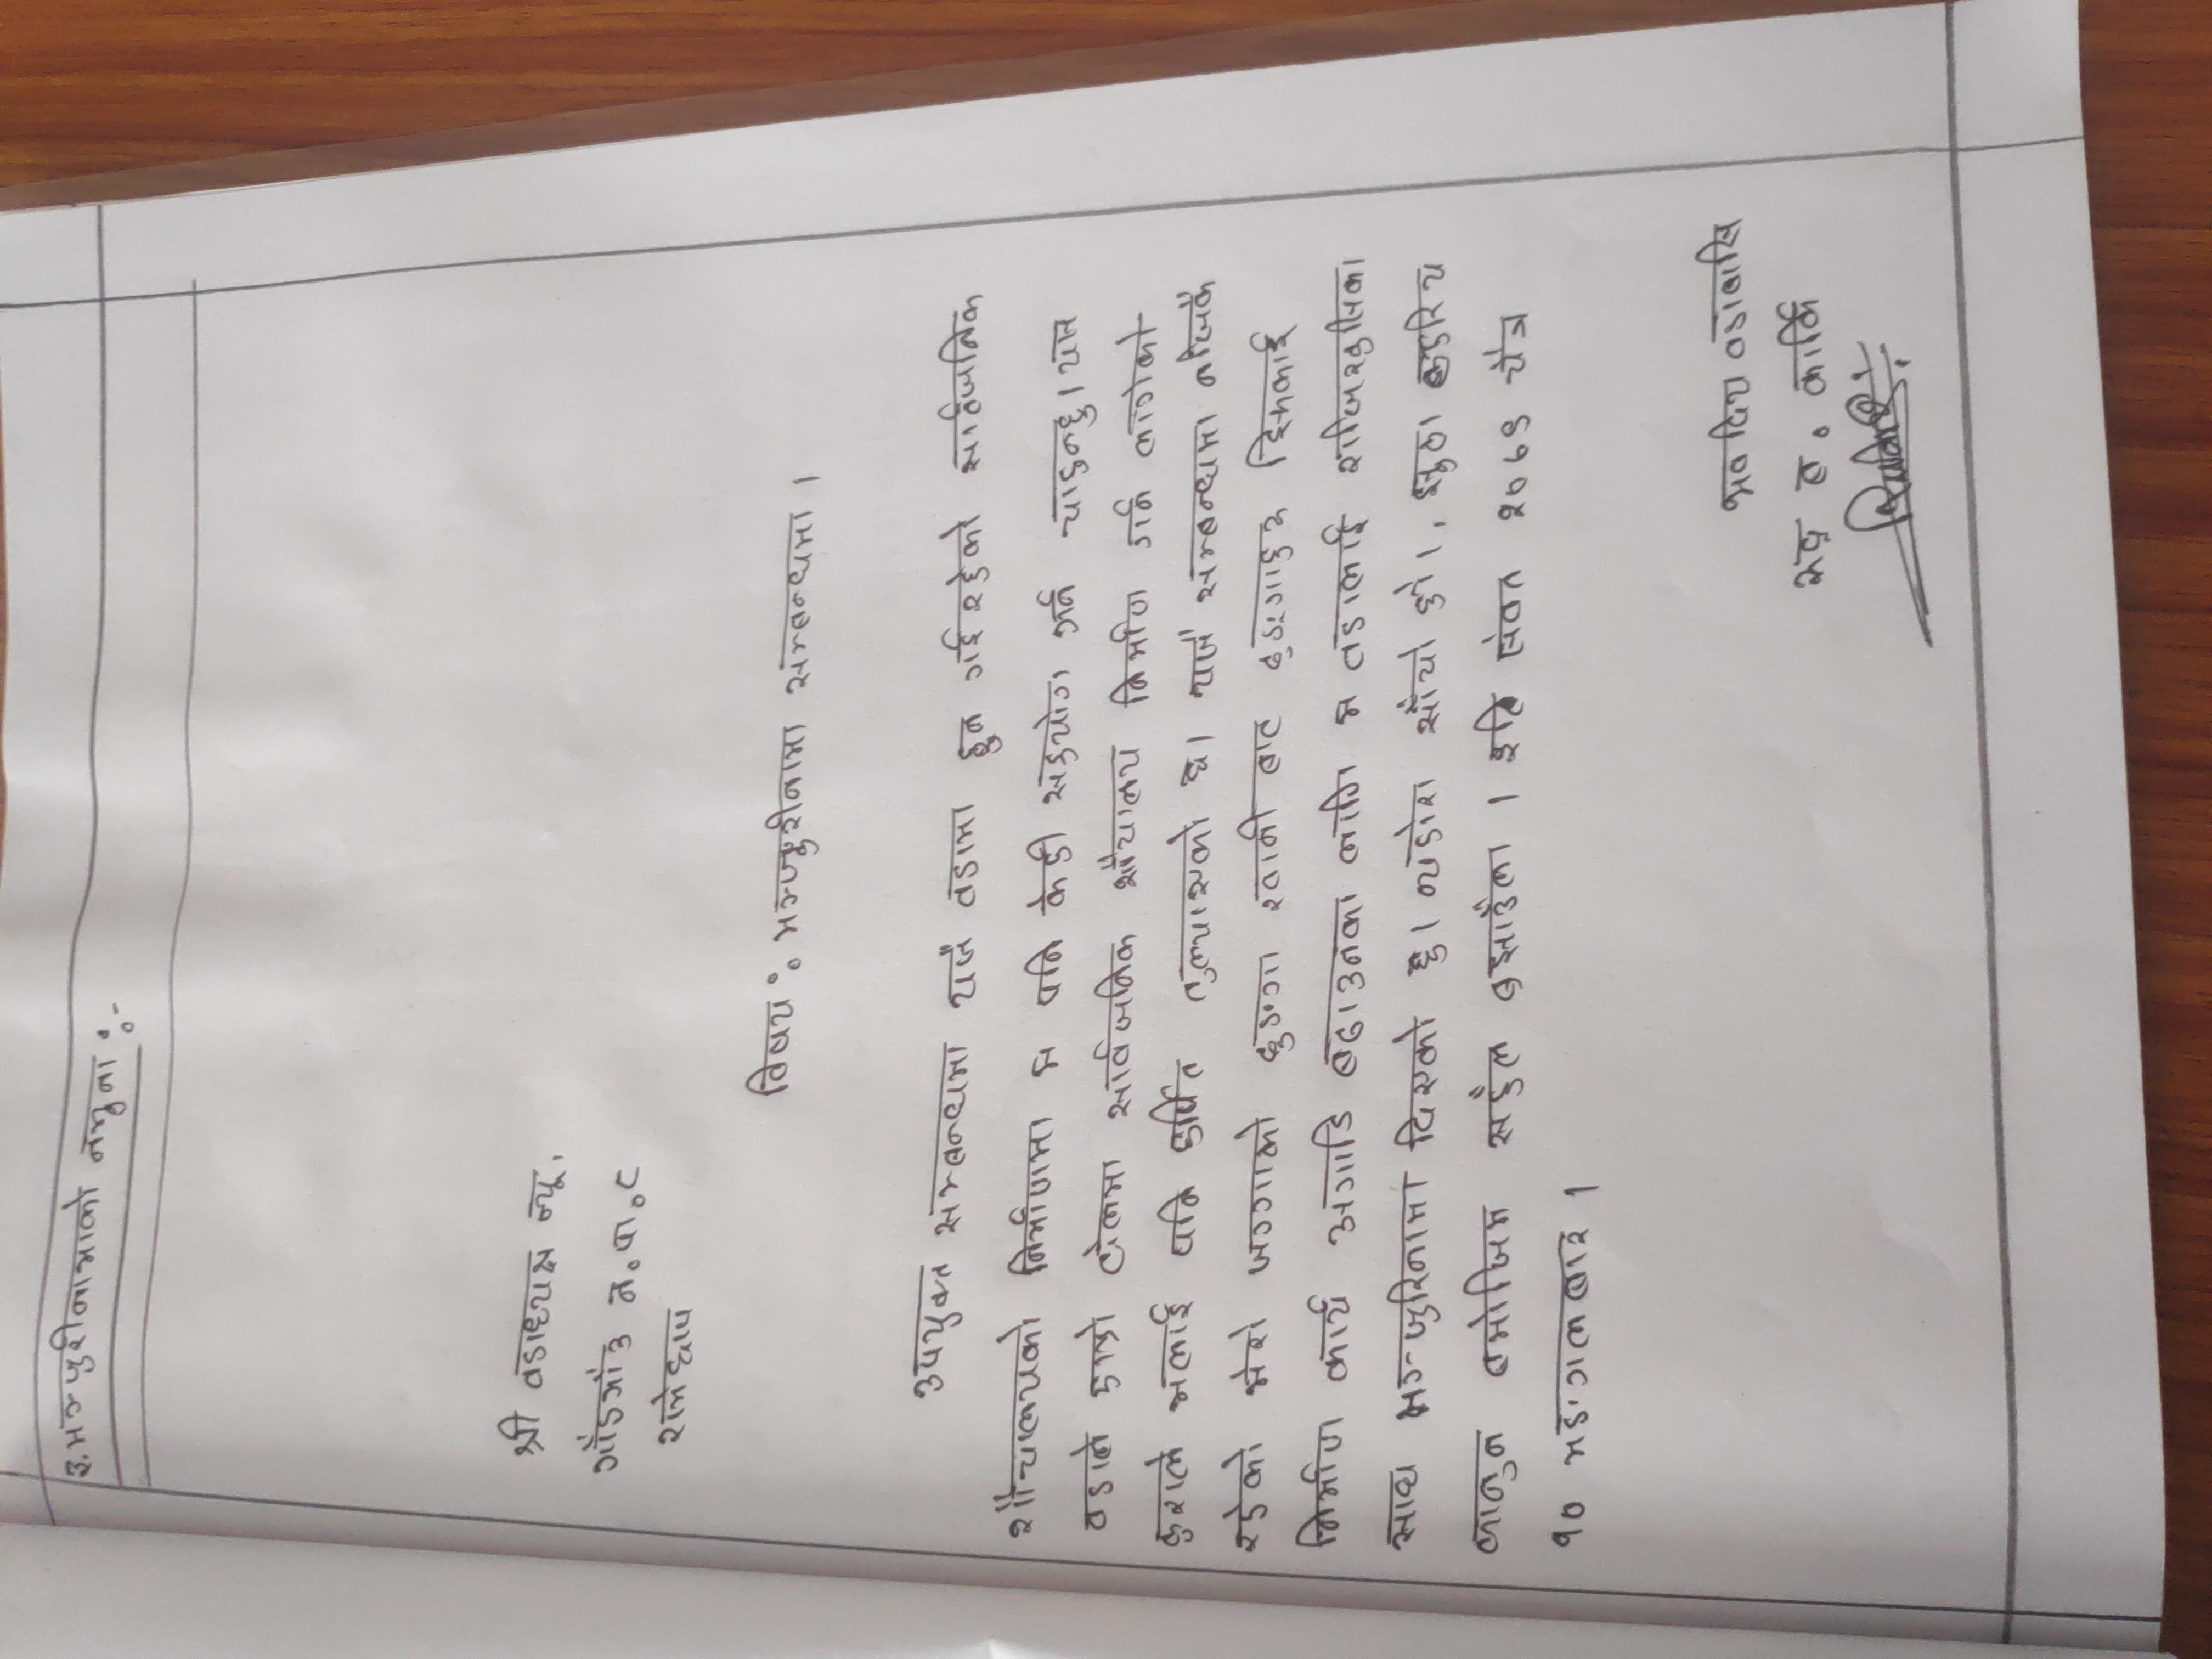 ३.मञ्जुरीनामाको नमुना :-
श्री वडाध्यक्ष ज्यू,
गाँउगाँउ न.पा.८
रामेछाप
विषय : मञ्जुरीनामा सम्बन्धमा ।
उपयुक्त सम्बन्धमा यसै वडामा हुन गईरहेको सार्वजनिक
शौचालयको निर्माणमा म पनि केही सहयोग गर्न चाहुन्छु। यस
वडाले हाम्रो टोलमा सार्वजनिक शौचालय निर्माण गर्न लागेको
कुराले मलाई पनि हर्षित तुल्याएको छ। यसै सम्बन्धमा नजिकै
रहेको मेरो जग्गाको ढुङगा खानी बाट ढुङगाहरु झिकाई
निर्माण कार्य अगाडि बढाउनका लागि म वडालाई राजिखुसिका
साथ मञ्जुरिनामा दिएको छु। व्यहोरा साँचो हो।, झुठा ठहरिय
कानुन बमोजिम सहुँला बुझाउँला । इति संवत २०७९ चैत्र
१० मङगलबार ।
भवदिय वडाबासि
रुद्र ब. कार्कि